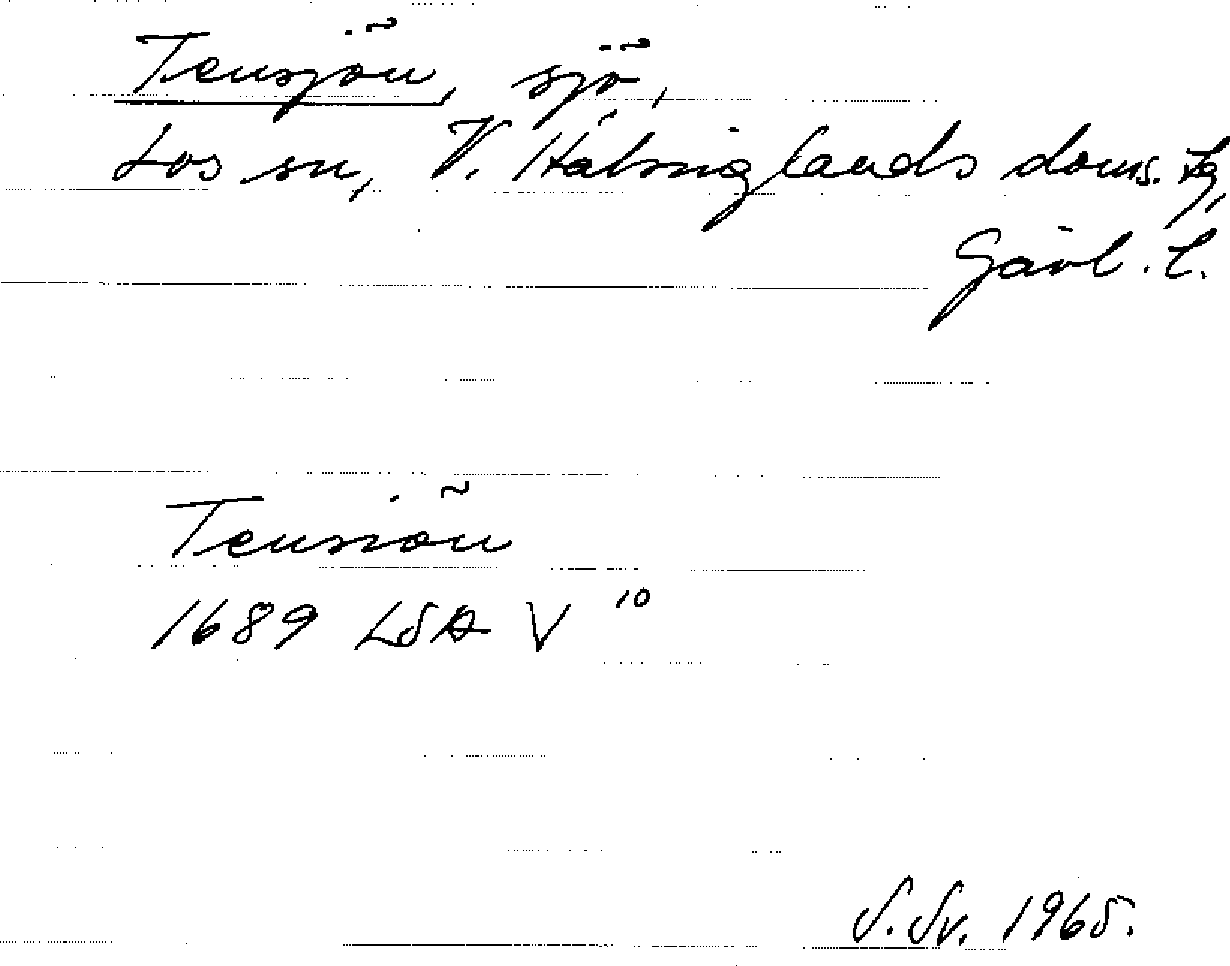 Tensjön, sjö,
Los sn, V. Hälsinglands doms. tg,
Gävl. l.
Tensiön
1689 LSA V 10
S. Sv. 1965.